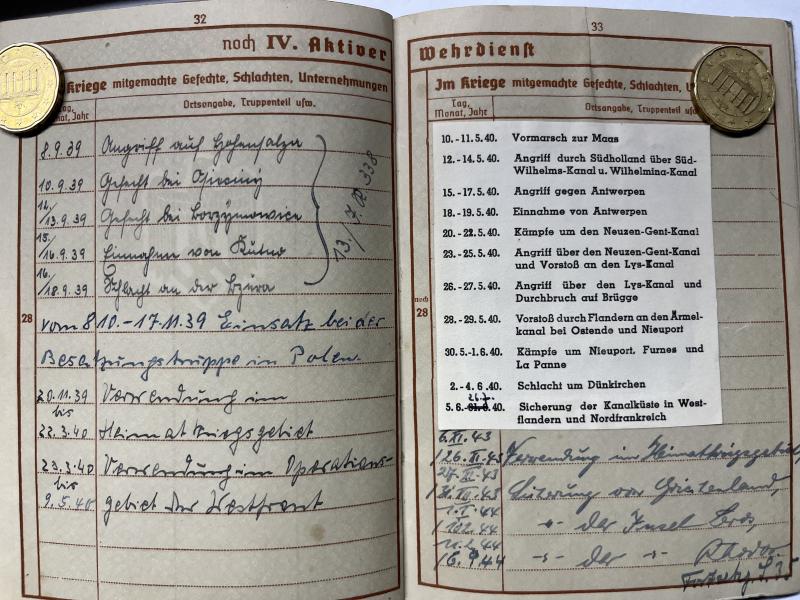 32
noch IV. Aktiver
Kriege mitgemachte Gefechte, Schlachten, Unternehmungen
Tag,
Monat, Jahr
Ortsangabe, Truppenteil usw.
8.9.39 Angriff auf Hohensalza
10.9.39 Gefecht bei
12./13.9.39 Gefecht bei Borzymowice
15./16.9.39 Einnahme von Kutno
16./18.9.39 Schlacht an der Bzura
13./I.R 338
28
vom 8.10.-17.11.39 Einsatz bei der
Besatzungstruppe in Polen
20.11.39 Verwendung im
bis
22.3.40 Heimatkriegsgebiet
23.3.40 Verwendung im Operations-
bis
9.5.40 gebiet der Westfront
33
Wehrdienst
Im Kriege mitgemachte Gefechte, Schlachten,
Tag,
Monat, Jahr
Ortsangabe, Truppenteil usw.
10.-11.5.40. Vormarsch zur Maas
12.-14.5.40. Angriff durch Südholland über Süd-
Wilhelms-Kanal u. Wilhelmina-Kanal
15.-17.5.40. Angriff gegen Antwerpen
18.-19.5.40. Einnahme von Antwerpen
20.-22.5.40. Kämpfe um den Neuzen-Gent-Kanal
23.-25.5.40. Angriff über den Neuzen-Gent-Kanal
und Vorstoß an den Lys-Kanal
26.-27.5.40. Angriff über den Lys-Kanal und
Durchbruch auf Brügge
noch
28
28.-29.5.40. Vorstoß durch Flandern an den Ärmel-
kanal bei Ostende und Nieuport
30.5.-1.6.40. Kämpfe um Nieuport, Furnes und
La Panne
2.-4.6.40. Schlacht um Dünkirchen
26.7.
5.6.- .40. Sicherung der Kanalküste in West-
flandern und Nordfrankreich
6.XI.43
/26.XI.43 Verwendung im Heimatkriegsgebiet,
27.XI.43
Sicherung von Griechenland,
1.I.44
-"- der Insel
-"- der -"- Rhodos.